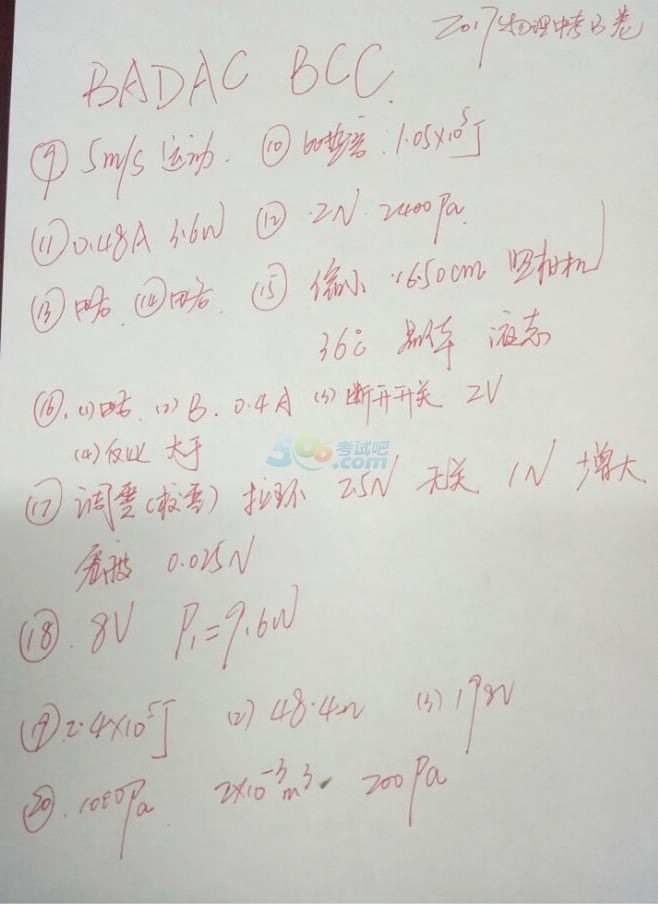 2017物理中考B卷
BADAC BCC.
⑨ 5m/s 运动. ⑩ 1.05×10⁵J
⑪ 0.48A 3.6W ⑫ 2N. 2400Pa.
⑬ 略. ⑭ 略. ⑮ 缩小 50cm 照相机
36℃ 液态
⑯. (1) 略. (2) B. 0.4A (3) 断开开关 2V
(4) 大于
566考试吧.com
⑰ 调零(校零) 拉环 2.5N 无关 1N 增大.
0.025N
⑱. 8V P₁=9.6W
⑲ 2.4×10⁵J (2) 48.4Ω (3)
⑳. 1000Pa. 2×10⁻³m³. 200Pa